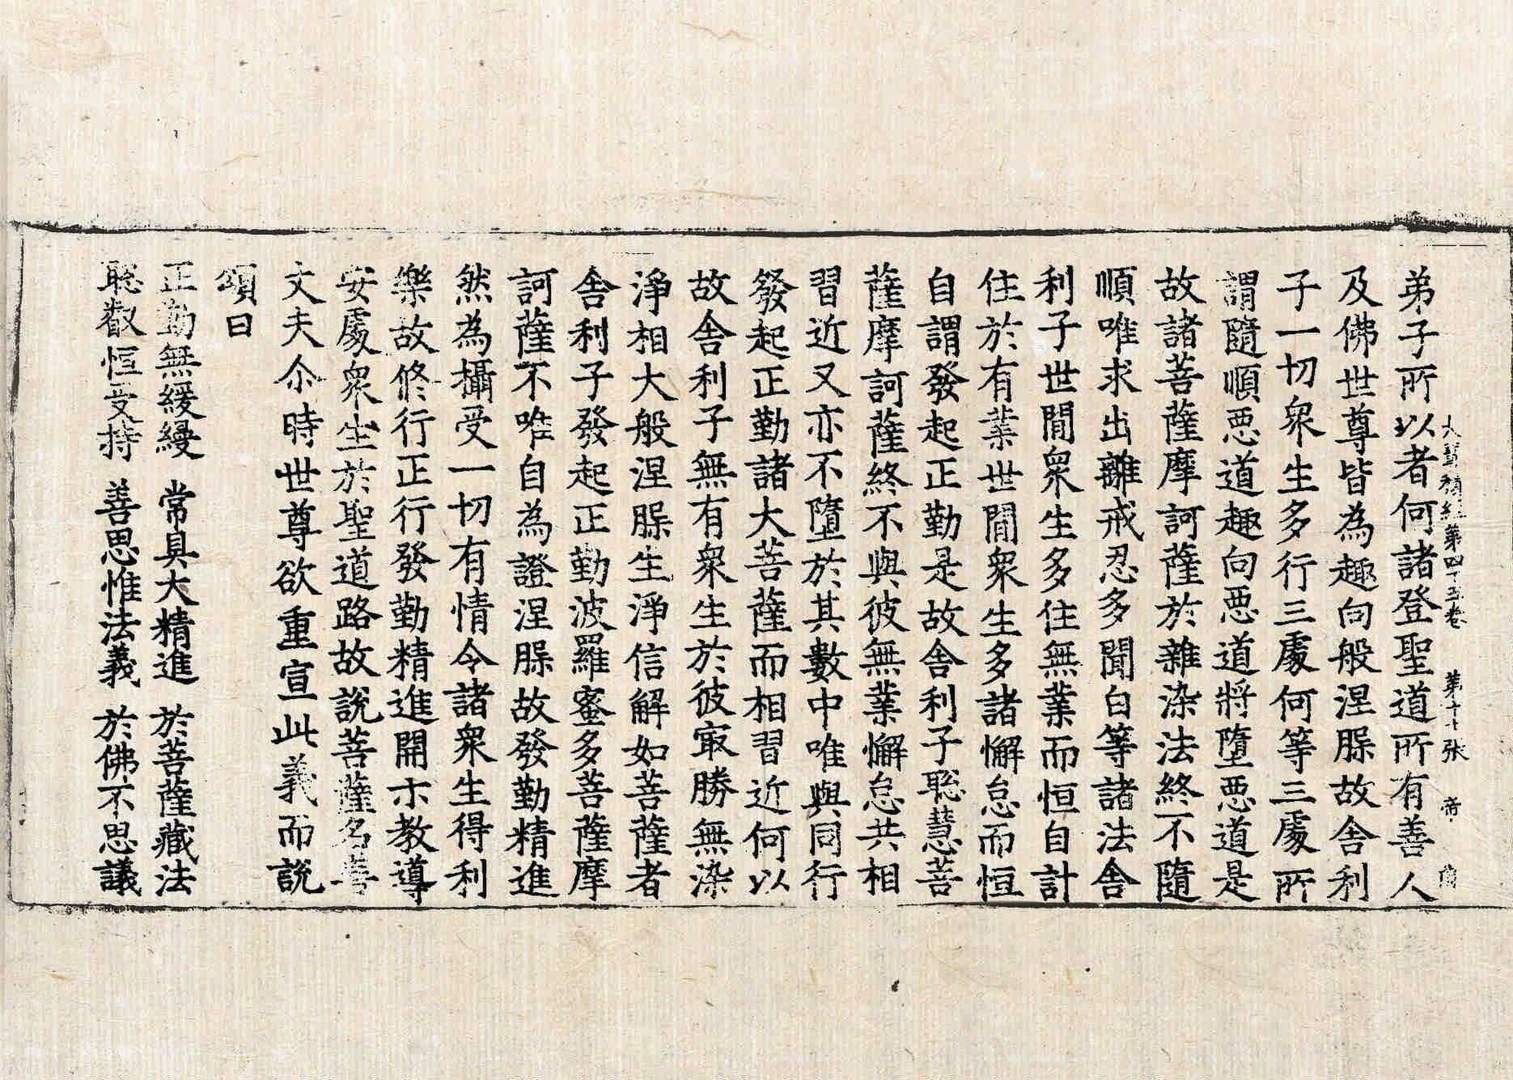 大寶積經第四十五卷 第十七張 帝
弟子所以者何諸登聖道所有善人
及佛世尊皆為趣向般涅脲故舍利
子一切衆生多行三處何等三處所
謂隨順惡道趣向惡道將墮惡道是
故諸菩薩摩訶薩於雜染法終不隨
順唯求出離戒忍多聞白等諸法舍
利子世閒衆生多住無業而恒自計
住於有業世閒衆生多諸懈怠而恒
自謂發起正勤是故舍利子聡慧菩
薩摩訶薩終不與彼無業懈怠共相
習近又亦不墮於其數中唯與同行
發起正勤諸大菩薩而相習近何以
故舍利子無有衆生於彼㝡勝無染
淨相大般涅脲生淨信解如菩薩者
舍利子發起正勤波羅蜜多菩薩摩
訶薩不唯自為證涅脲故發勤精進
然為攝受一切有情令諸衆生得利
樂故修行正行發勤精進開示教導
安處衆生於聖道路故說菩薩名善
丈夫尒時世尊欲重宣此義而說
頌曰
正勤無緩縵 常具大精進 於菩薩藏法
聡叡恒受持 善思惟法義 於佛不思議